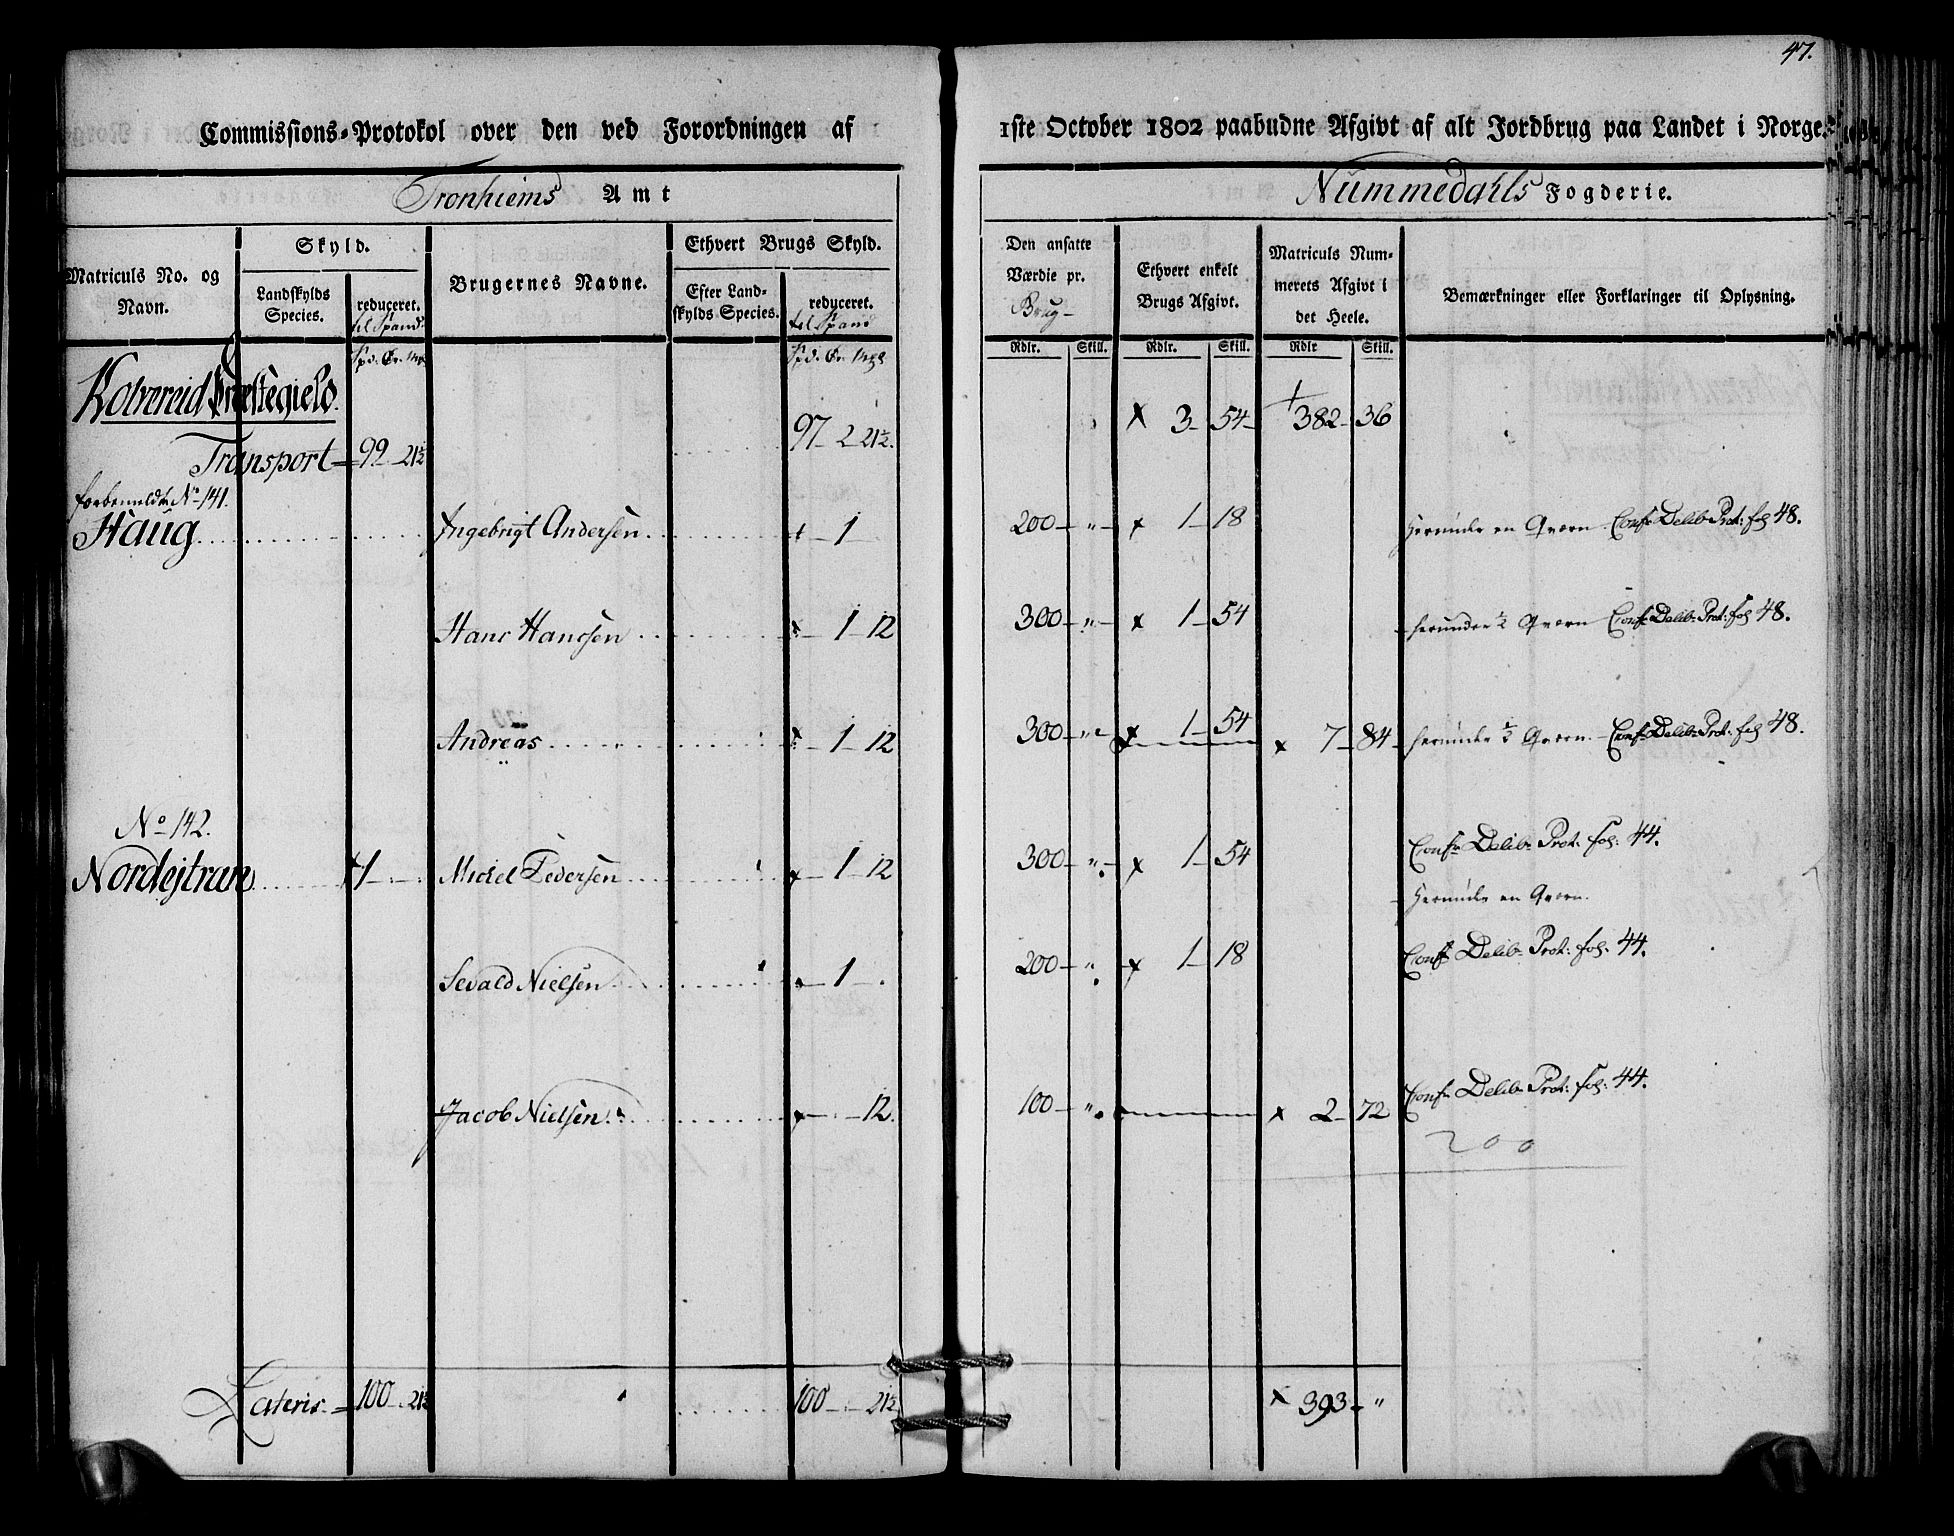 47.
Commissions-Protokol over den ved Forordningen af 1ste October 1802 paabudne Afgivt af alt Jordbrug paa Landet i Norge.
Tronhiems Amt Nummedahls Fogderie.
Matriculs No. og Navn. Skyld. Landskylds Species. reduceret. til Spand. Brugernes Navne. Ethvert Brugs Skyld. Efter Landskylds Species. reduceret. til Spand Den ansatte Værdie pr. Brug- Ethvert enkelt Brugs Afgivt. Matriculs Nummerets Afgivt i det Heele. Bemærkninger eller Forklaringer til Oplysning.
Rdlr. Skill. Rdlr. Skill. Rdlr Skill.
Kolvereid Præstegield.
Transport 99 - 21½ 97 - 2 21½. x 3 - 54 - 382 - 36
forbemeldte No 141.
Haug Ingebrigt Andersen + - 1 200 - " - x 1 - 18 herunder en Qværn Confr Delib Prot: fol 48.
Hans Hanssen x - 1 - 12 300 - " - x 1 - 54 herunder ½ Qværn Confr Delib Prot: fol 48.
Andreas " x - 1 - 12 300 - " - x 1 - 54 x 7 - 84 - herunder ½ Qværn - Confr Delib Prot: fol 48.
No 142.
Nordejtran 1 - Michel Pedersen x - 1 - 12 300 - " - x 1 - 54 Confr Delib Prot: fol: 44.
Herunder en Qværn.
Sevald Nielsen x - 1 - 200 - " - x 1 - 18 Confr Delib Prot: fol: 44.
Jacob Nielsen x - - 12. 100 - " x 2 - 72 Confr Delib Prot: fol: 44.
200
Lateris 100 - 21½ 100 - 21½ x 393 - "